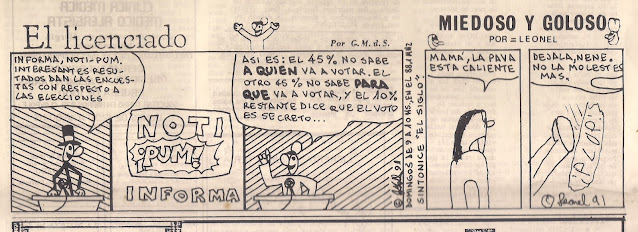 El licenciado
Por G. M. d. S.
INFORMA, NOTI-PUM.
INTERESANTES RESU-
TADOS DAN LAS ENCUES-
TAS CON RESPECTO A
LAS ELECCIONES
NOTI
¡PUM!
INFORMA
ASI ES: EL 45% NO SABE
A QUIÉN VA A VOTAR. EL
OTRO 45% NO SABE PARA
QUE VA A VOTAR, Y EL 10%
RESTANTE DICE QUE EL VOTO
ES SECRETO...
DOMINGOS DE 9 A 10 HS, EN EL 88.1 MHZ
SINTONICE "EL SIGLO"
MIEDOSO Y GOLOSO
POR = LEONEL
MAMÁ, LA PAVA
ESTA CALIENTE
DEJALA, NENE.
NO LA MOLESTES
MAS.
¡PLOP!
Leonel 91